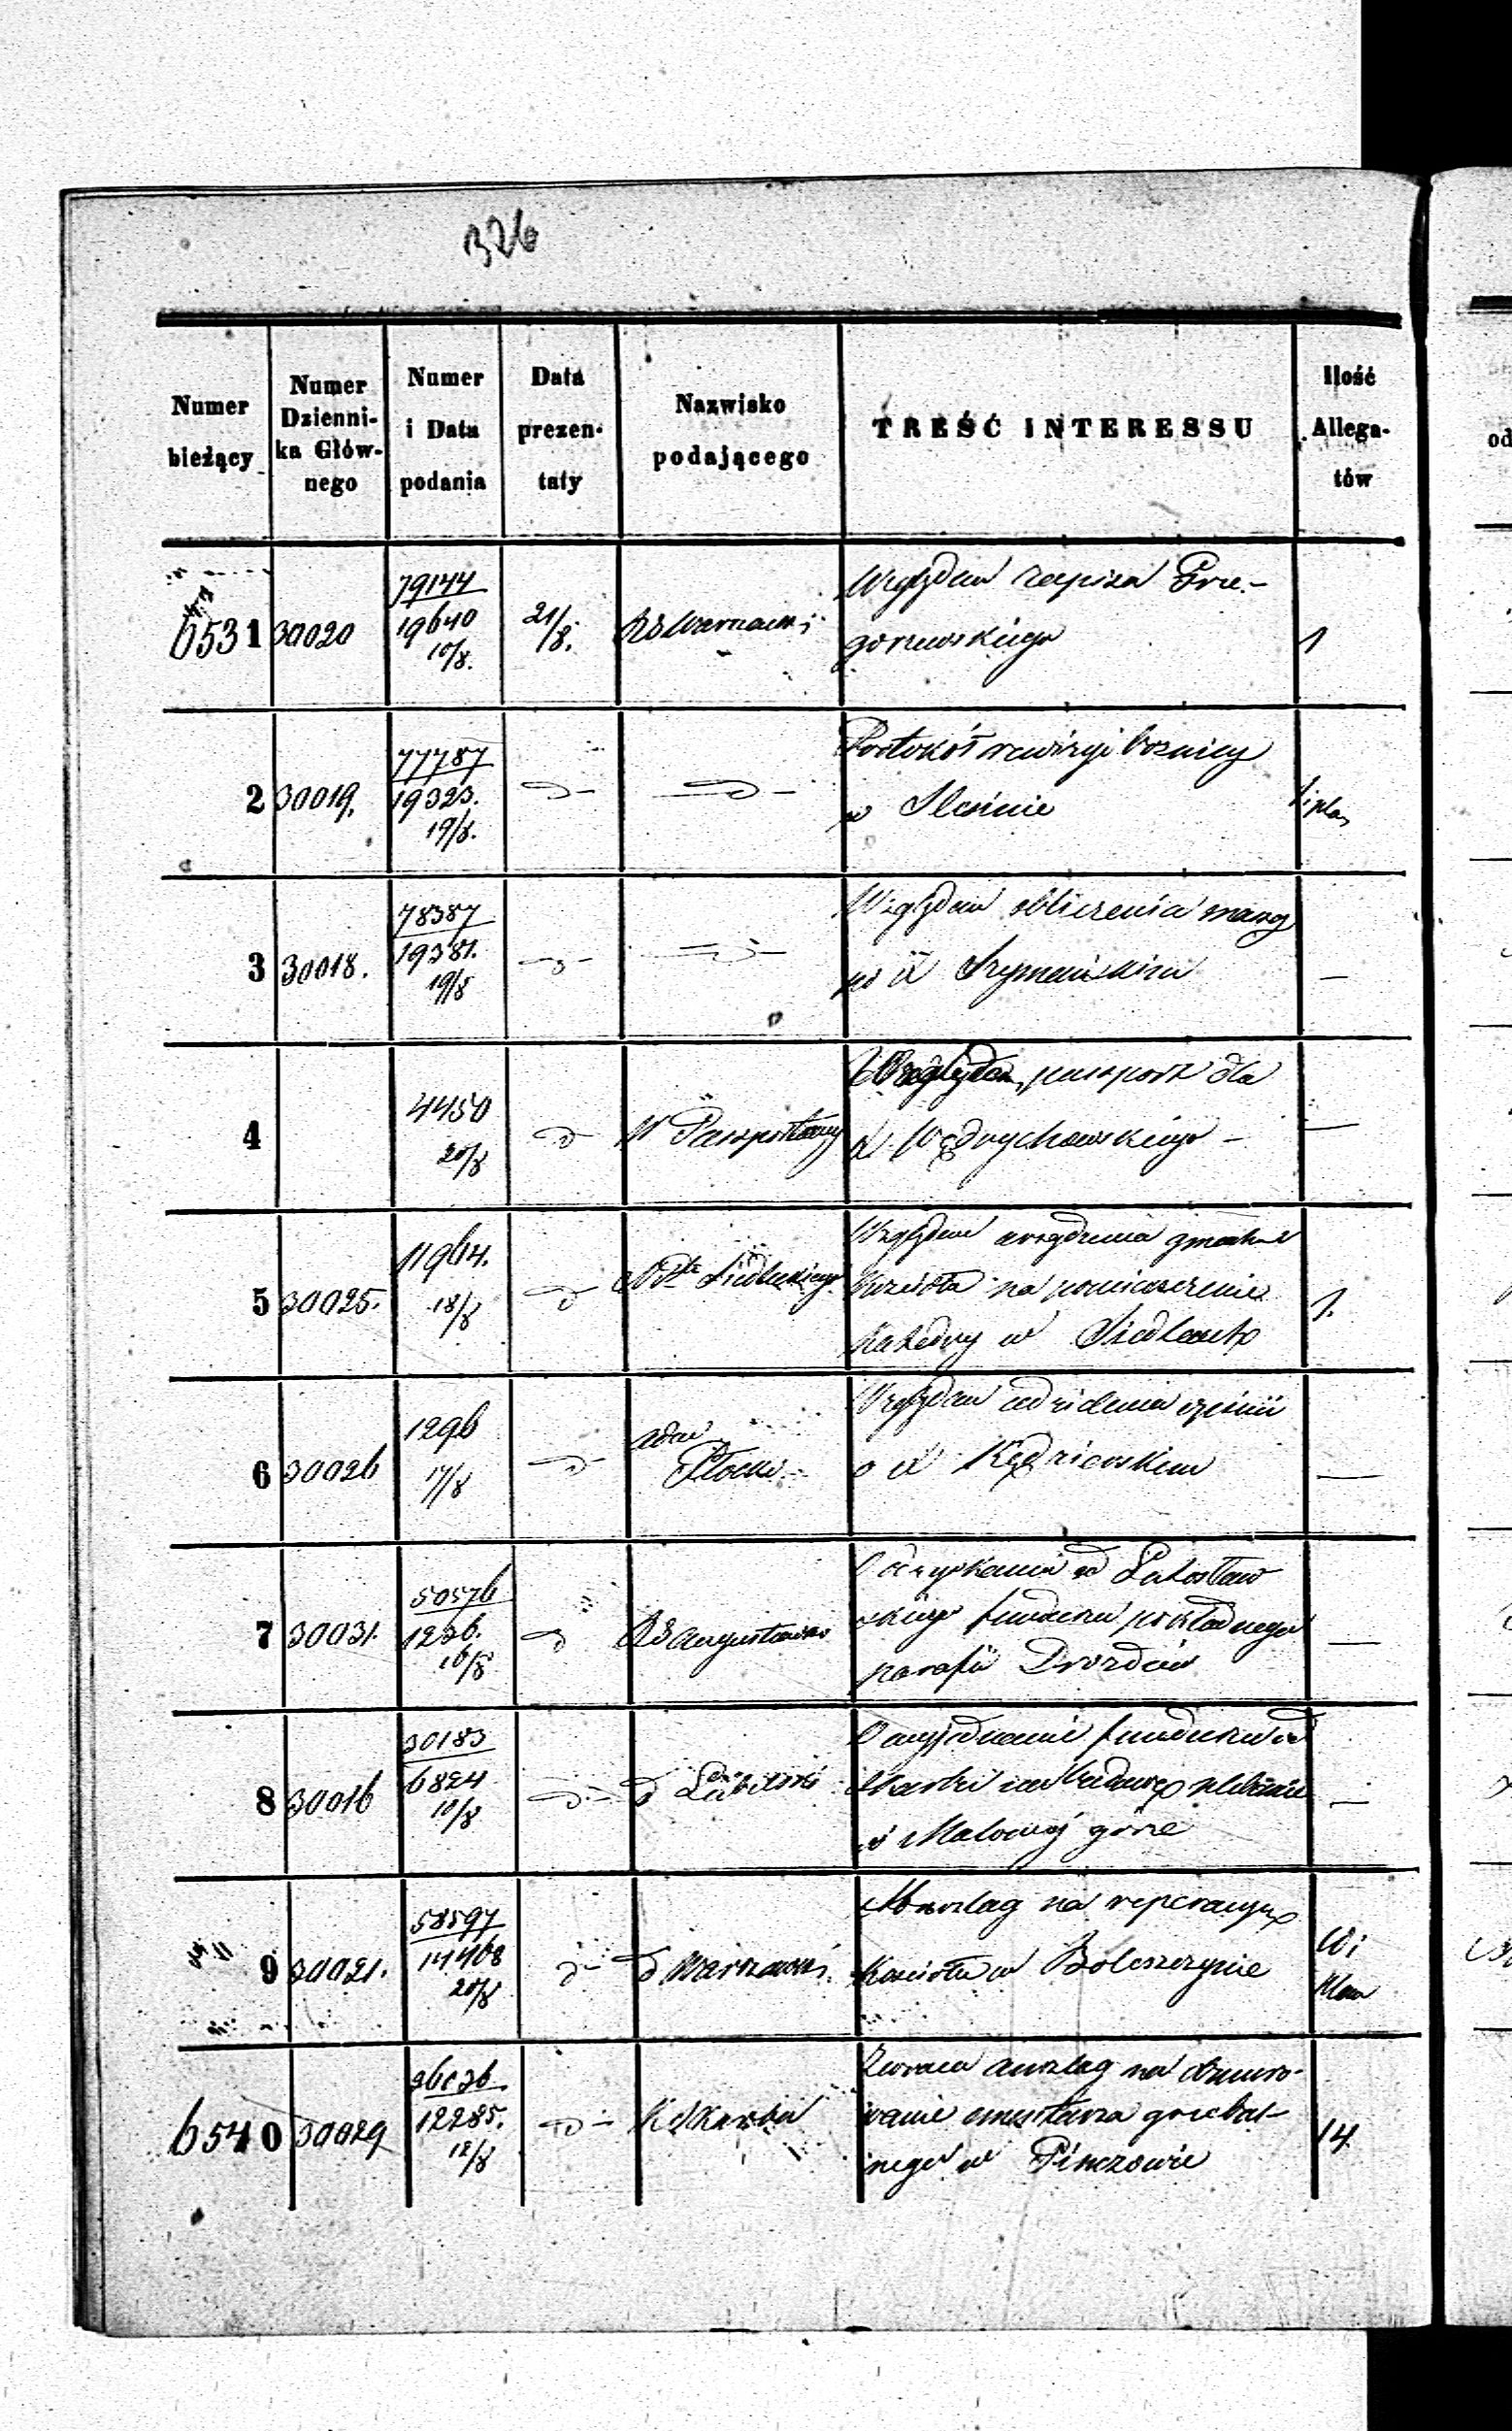 326
Numer bieżący
Numer Dzienni-ka Głów-nego
Numer i Data podania
Data prezen-taty
Nazwisko podającego
TREŚĆ INTERESSU
Ilość Allega-tów
6531 30020 79144 19640 10/8. 21/8. RG Warszaws: Względem 
gorzewskiego 1
2 30019. 77787 19323. 19/8. Protokół rewizyi bożnicy
w Ślesinie i plan
3 30018. 78387 19381. 19/8 Względem obliczenia massy
po X Szymańskim —
4 4450 20/8 W Passportowy Względem passport dla
X Wędrychowskiego —
5 30025. 11964. 18/8 Siedleckiego Względem urządzenia gmachu
Kościoła na pomieszczenie
Katedry w Siedlcach 1.
6 30026 1296 17/8 Adm Płocki Względem udzielenia opinii
o X Kędzierskim —
7 30031. 50576 1236. 16/8 RG Augustowski O odzyskaniu od Lutosław
skiego funduszu pokładnego
parafii Drozdowo —
8 30016 30183 6824 10/8 d Lubelski O wyjednanie funduszu ze
Skarbu na budowę plebanii
w Malowej górze —
9 30021. 58597 14468 20/8 d Warszawski Anszlag na reperacyę
Kościoła w Boleszczynie Wi plan
6540 30029 12285. 18/8 K S Karbu Zwraca anszlag na obmuro-
wanie cmentarza grzebal-
nego w Pińczowie 14